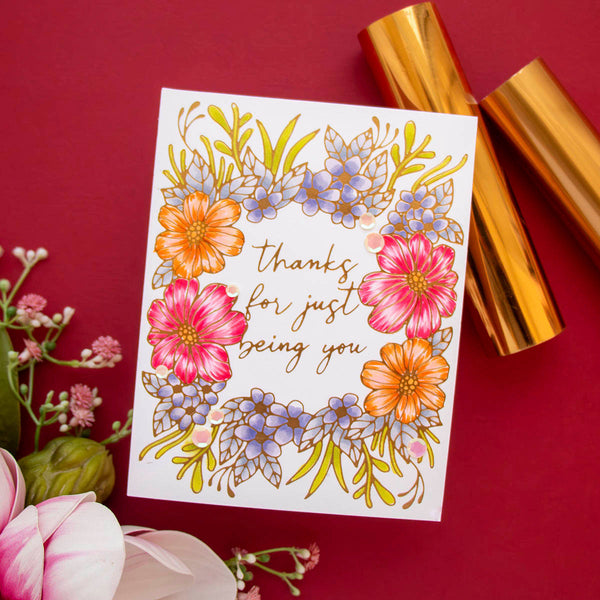 thanks
for just
being you